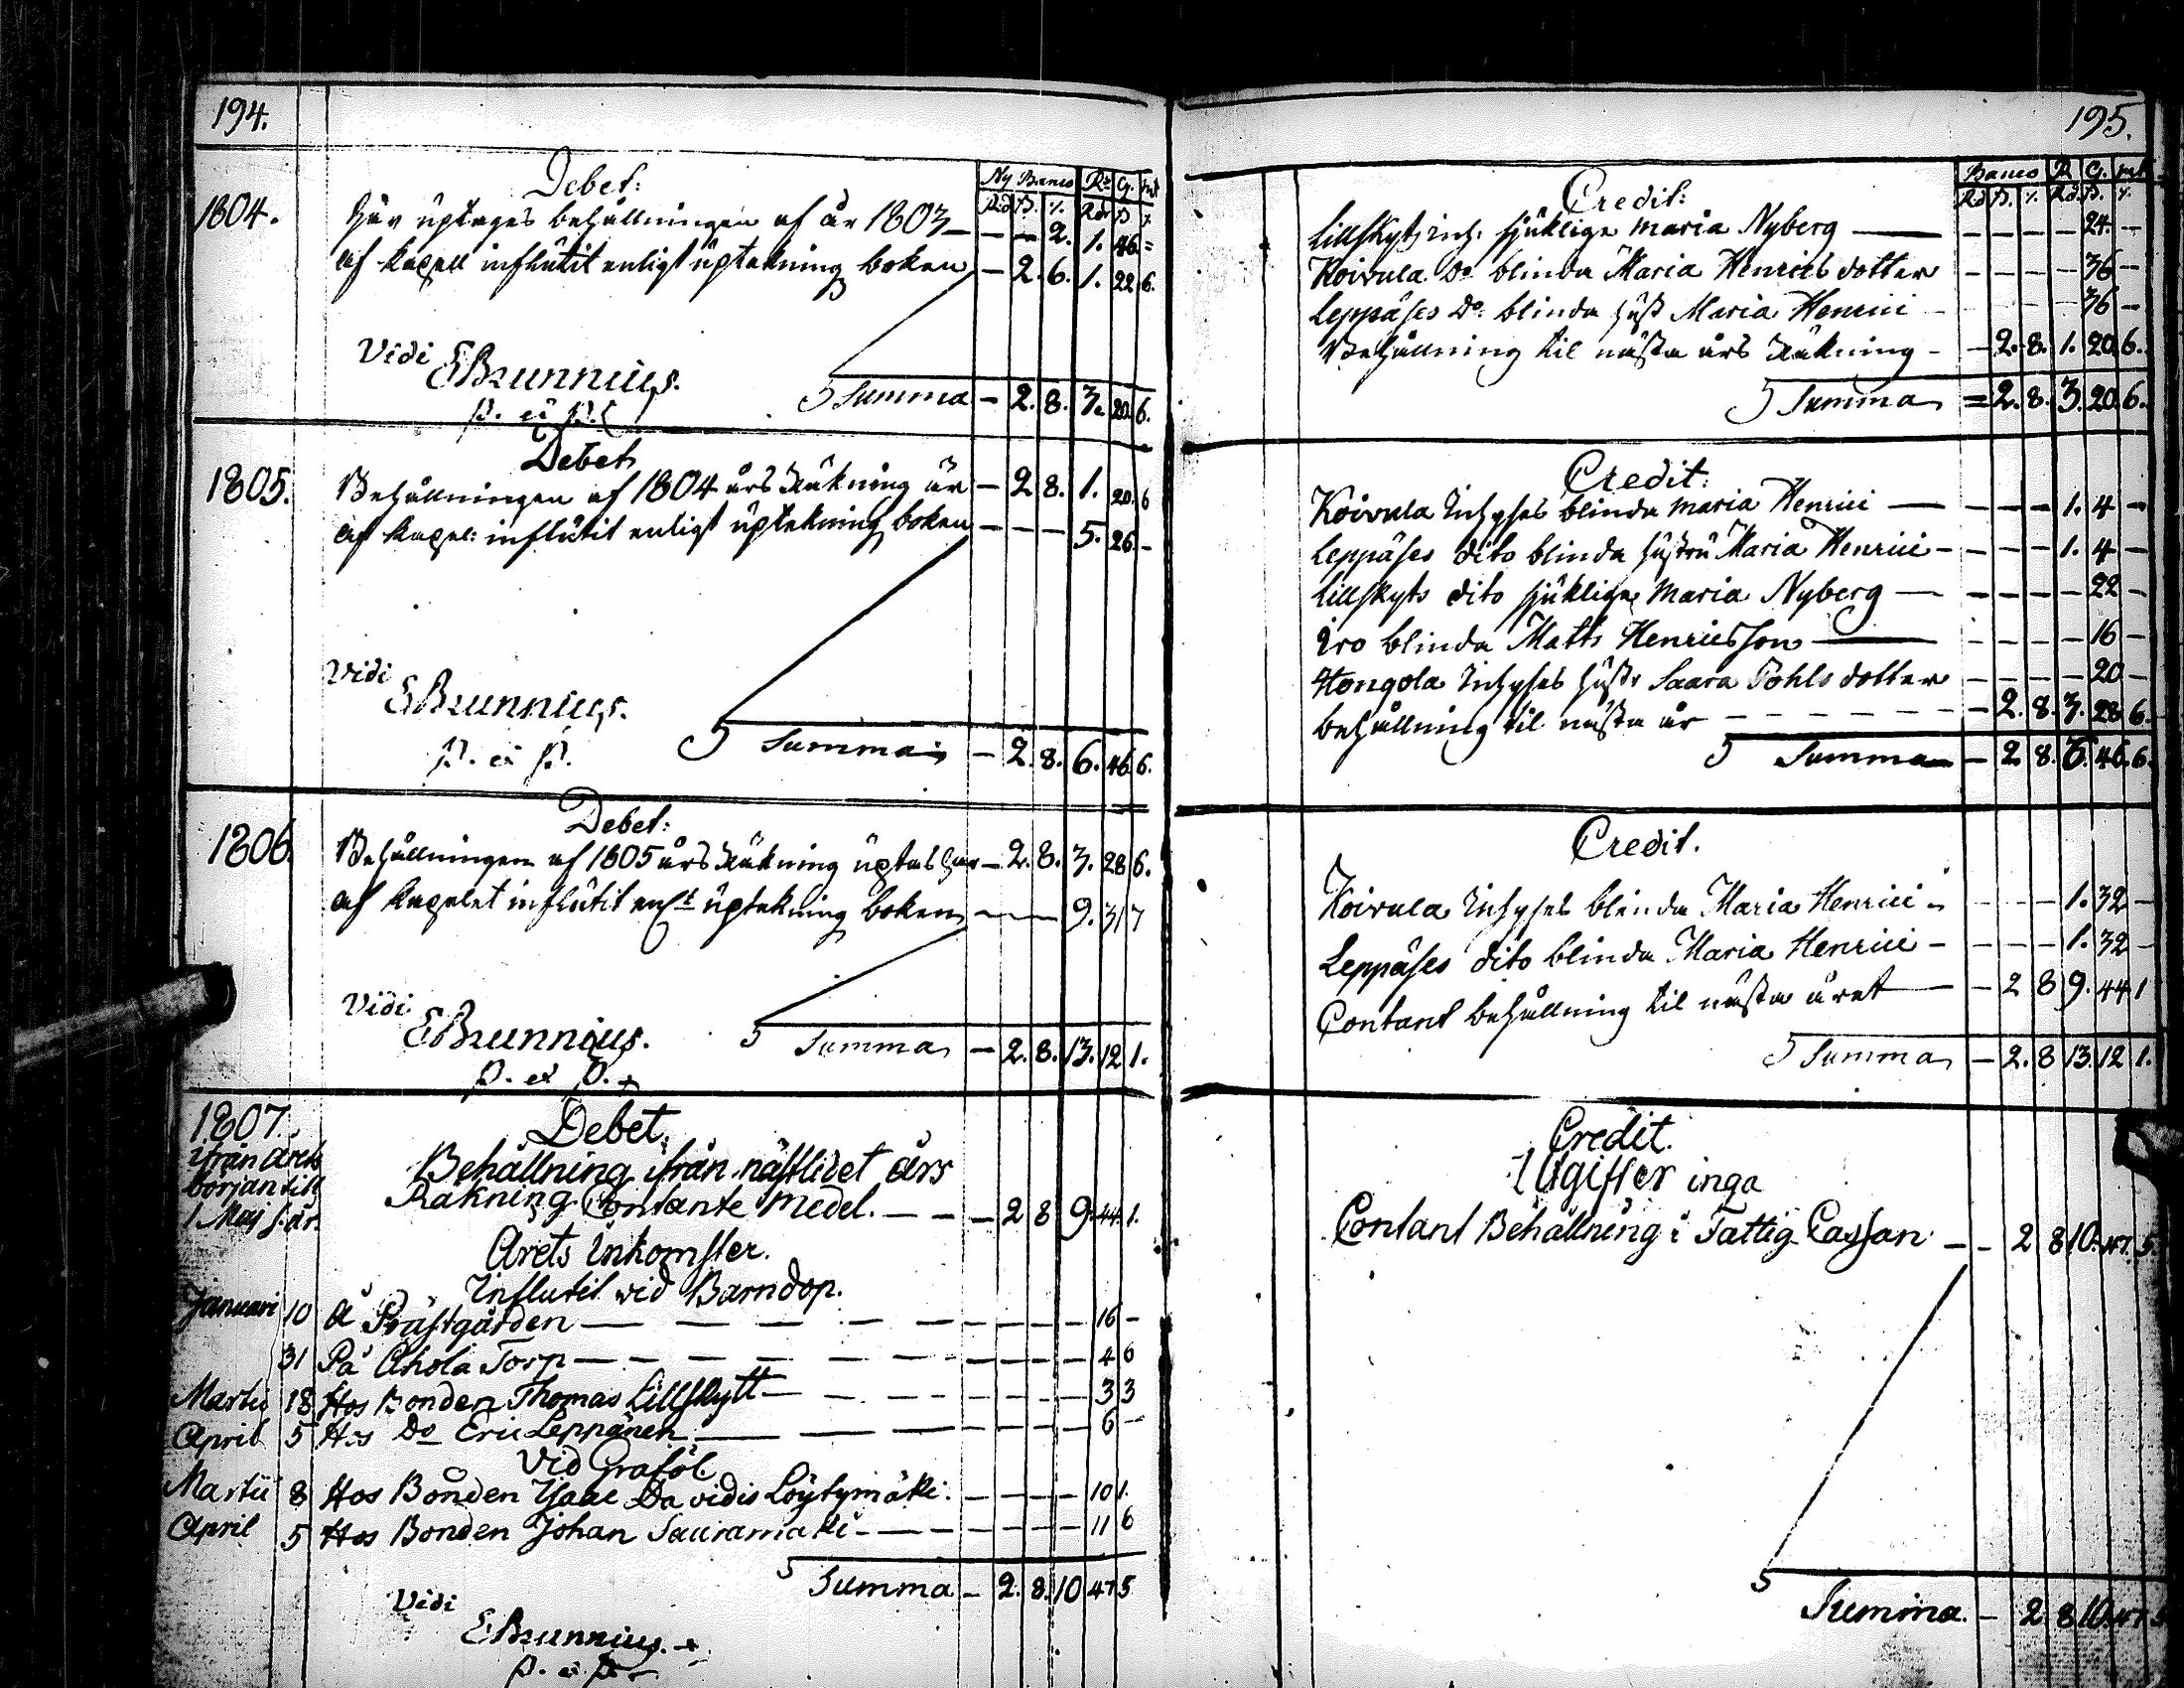 194.
Debet:
Ny Banco Rs G. mt
Rd ß. r. Rdr ß r
1804. Här uptages behållningen af år 1803 — — — 2. 1. 46 =
af kapell influtit enligt uptekning boken — 2. 6. 1. 22 6.
Vidi EBrunnius.
P. et P.
Summa — 2. 8. 3. 20. 6.
Debet
1805. Behållningen af 1804 års Räkning är — 2 8. 1. 20 6
af kapel: influtit enligt uptekning boken — — — 5. 26 -
Vidi
EBrunnius.
P. et P.
Summa — 2. 8. 6. 46. 6.
Debet:
1806. Behållningen af 1805 års Räkning uptas här — 2. 8. 3. 28 6.
af kapelet influtit enlt uptekning boken — — — 9. 31 7
Vidi
EBrunnius.
P. et P.
Summa — 2. 8. 13. 12 1.
1807.
ifrån årets
början till
1 Maj s. år.
Debet.
Behållning ifrån nästlidet års
Räkning Contante medel. — — — 2 8 9. 44. 1.
Årets Inkomster.
Influtit vid Barndop.
Januari 10 Å Prästgården — — — 16 -
31 På Ahola Torp — — — 4 6
Martii 18 Hos Bonden Thomas Lillskytt — — — 3 3
April 5 Hos Do Eric Leppänen — — — 6 -
Vid Graföl
Martii 8 Hos Bonden Isaac Davidis Löytymäki. — — — 10 1.
April 5 Hos Bonden Johan Sauramäki — — — 11 6
Summa — 2. 8. 10 47 5
Vidi
EBrunnius.
P. et P.
195.
Banco R G. mt
Rd ß. r. Rd. ß. r.
Credit:
Lillskyts inh. sjuklige Maria Nyberg — — — 24. -
Koivula Do blinda Maria Henrics dotter — — — 36 -
Leppäses Do blinda hust Maria Henrici — — — 36 -
Behållning til nästa års Räkning — 2. 8. 1. 20 6.
Summa = 2. 8. 3. 20. 6.
Credit:
Koivula Inhyses blinda Maria Henrici — — — 1. 4 -
Leppäses dito blinda hustru Maria Henrici — — — 1. 4 -
Lillskyts dito sjuklige Maria Nyberg — — — 22 -
Iro blinda Matts Henricsson — — — 16 -
Hongola Inhyses hustr Saara Pohls dotter — — — 20 -
behållning til nästa år — — — 2. 8. 3. 28 6.
Summa — 2 8. 6. 46. 6.
Credit.
Koivula Inhyses blinda Maria Henrici — — — 1. 32 -
Leppäses dito blinda Maria Henrici — — — 1. 32 -
Contant behållning til nästa året — 2 8 9. 44 1
Summa — 2. 8 13. 12 1.
Credit.
Utgifter inga
Contant Behållning i Fattig Cassan — — 2 8 10. 47. 5.
Summa. — 2 8 10. 47. 5